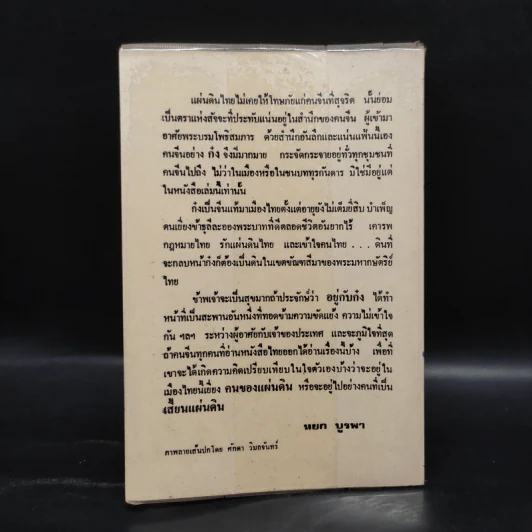 แผ่นดินไทยไม่เคยให้โทษภัยแก่คนจีนที่สุจริต นั้นย่อม
เป็นตราแห่งสัจจะที่ประทับแน่นอยู่ในสำนึกของคนจีน ผู้เข้ามา
อาศัยพระบรมโพธิสมภาร ด้วยสำนึกอันลึกและแน่นแฟ้นนี้เอง
คนจีนอย่าง ก๋ง จึงมีมากมาย กระจัดกระจายอยู่ทั่วทุกชุมชนที่
คนจีนไปถึง ไม่ว่าในเมืองหรือในชนบททุรกันดาร มิใช่มีอยู่แต่
ในหนังสือเล่มนี้เท่านั้น
ก๋งเป็นจีนแท้มาเมืองไทยตั้งแต่อายุยังไม่เต็มยี่สิบ บำเพ็ญ
ตนเยี่ยงข้าธุลีละอองพระบาทที่ดีตลอดชีวิตอันยากไร้ เคารพ
กฎหมายไทย รักแผ่นดินไทย และเข้าใจคนไทย ... ดินที่
จะกลบหน้าก๋งก็ต้องเป็นดินในเขตขัณฑสีมาของพระมหากษัตริย์
ไทย
ข้าพเจ้าจะเป็นสุขมากถ้าประจักษ์ว่า อยู่กับก๋ง ได้ทำ
หน้าที่เป็นสะพานอันหนึ่งที่ทอดข้ามความขัดแย้ง ความไม่เข้าใจ
กัน ฯลฯ ระหว่างผู้อาศัยกับเจ้าของประเทศ และจะภูมิใจที่สุด
ถ้าคนจีนทุกคนที่อ่านหนังสือไทยออกได้อ่านเรื่องนี้บ้าง เพื่อที่
เขาจะได้เกิดความคิดเปรียบเทียบในใจตัวเองบ้างว่าจะอยู่ใน
เมืองไทยนี้เยี่ยง คนของแผ่นดิน หรือจะอยู่ไปอย่างคนที่เป็น
เสี้ยนแผ่นดิน
หยก บูรพา
ภาพลายเส้นปกโดย ศักดา วิมลจันทร์